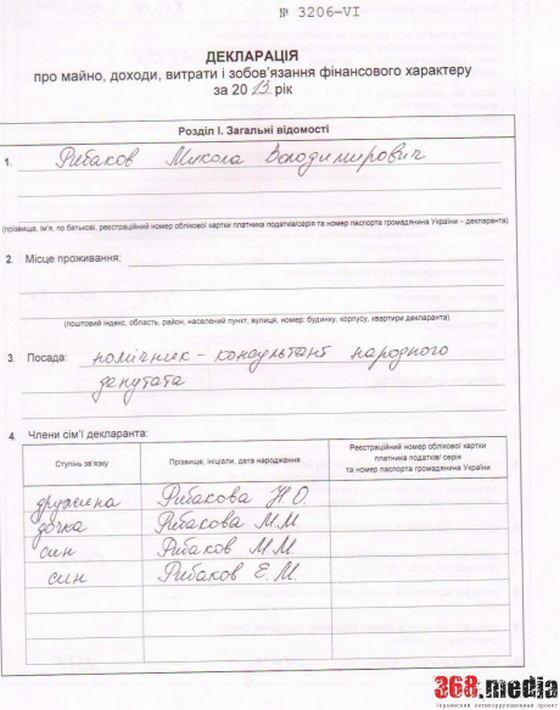 № 3206-VI
ДЕКЛАРАЦІЯ
про майно, доходи, витрати і зобов'язання фінансового характеру
за 2013 рік
Розділ І. Загальні відомості
1. Рибаков Микола Володимирович
(прізвище, ім'я, по батькові, реєстраційний номер облікової картки платника податків/серія та номер паспорта громадянина України – декларанта)
2. Місце проживання:
(поштовий індекс, область, район, населений пункт, вулиця, номер: будинку, корпусу, квартири декларанта)
3. Посада: помічник - консультант народного
депутата
4. Члени сім'ї декларанта:
Ступінь зв'язку
Прізвище, ініціали, дата народження
Реєстраційний номер облікової картки
платника податків/ серія
та номер паспорта громадянина України
дружина Рибакова Н.О.
дочка Рибакова М.М.
син Рибаков М.М.
син Рибаков Е.М.
368.media
Украинский антикоррупционный проект